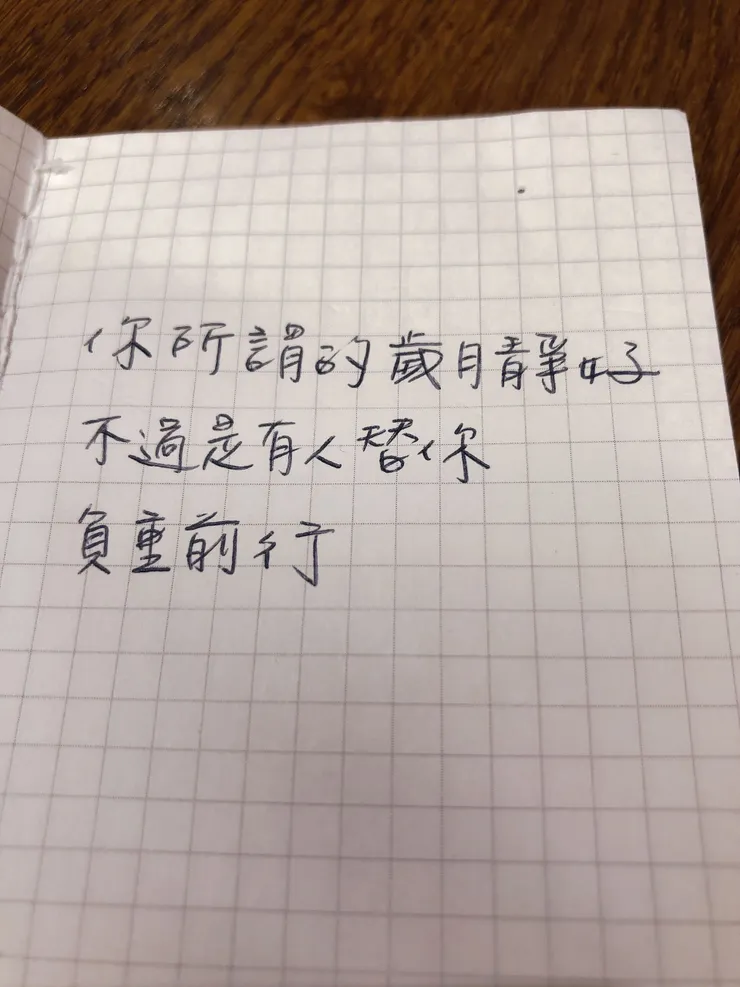 你所謂的歲月靜好
不過是有人替你
負重前行